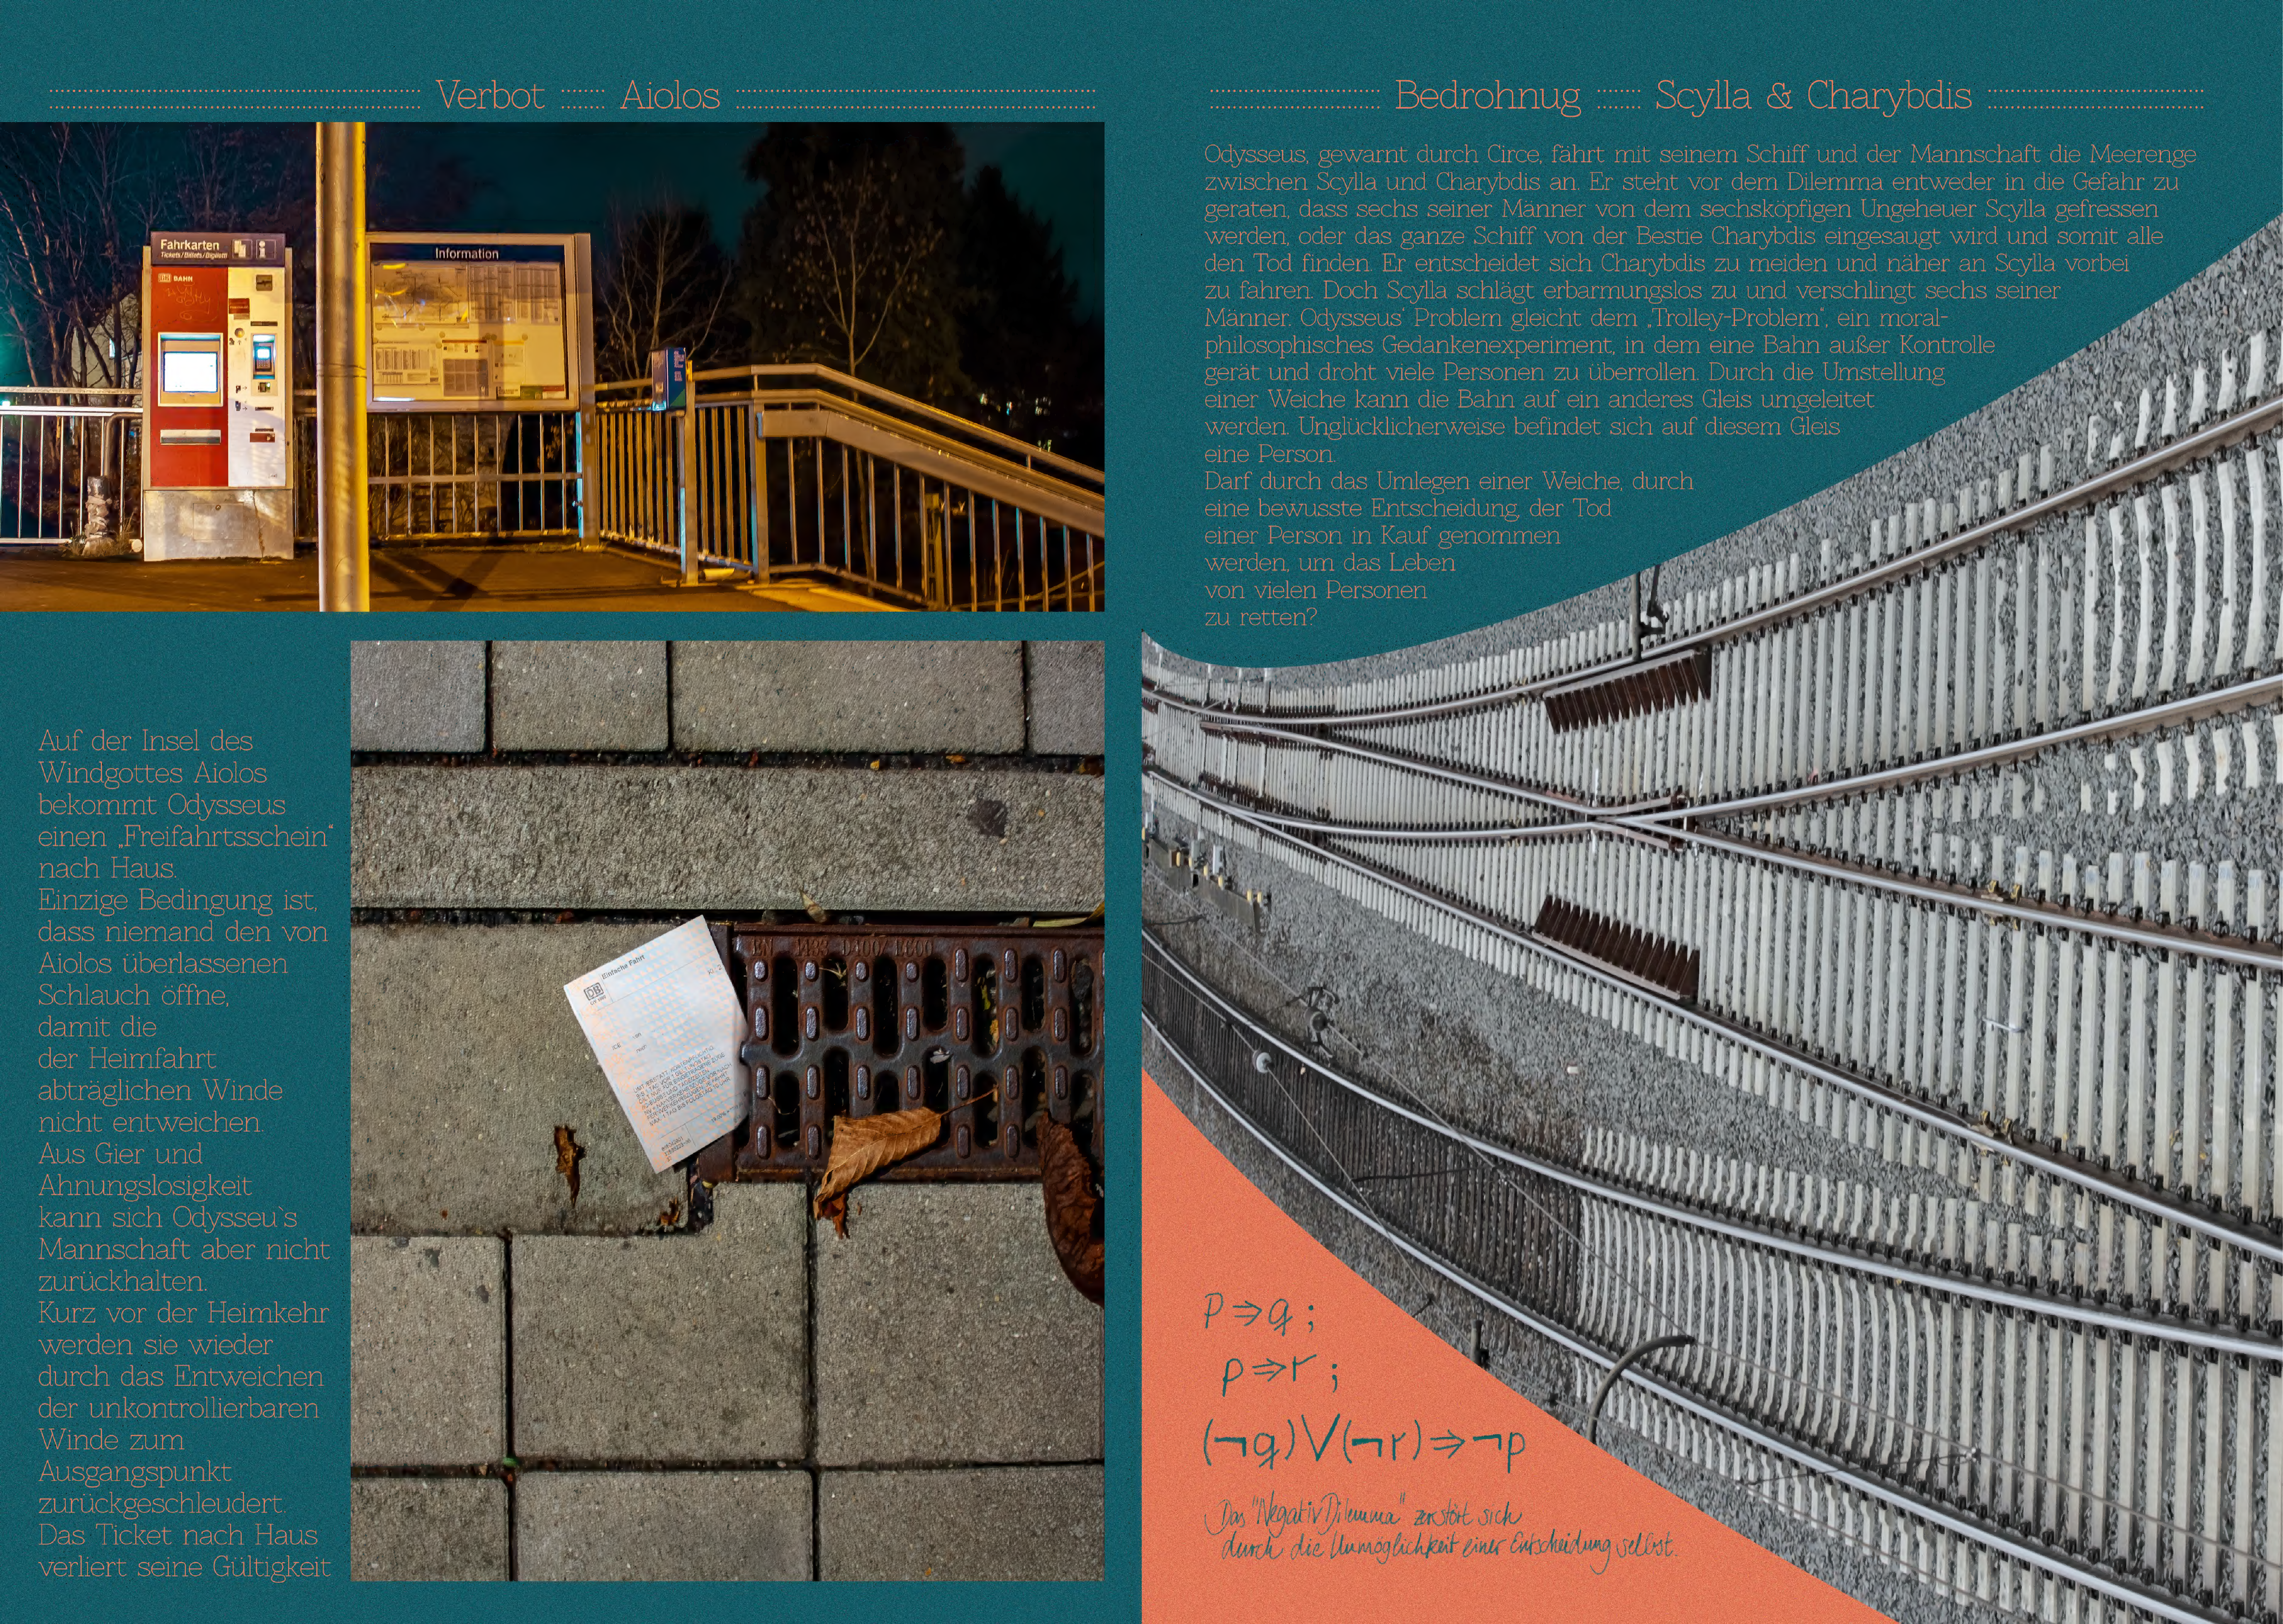 Verbot Aiolos
Fahrkarten
Tickets/Billets/Biglietti
DB BAHN
Information
Auf der Insel des
Windgottes Aiolos
bekommt Odysseus
einen „Freifahrtsschein“
nach Haus.
Einzige Bedingung ist,
dass niemand den von
Aiolos überlassenen
Schlauch öffne,
damit die
der Heimfahrt
abträglichen Winde
nicht entweichen.
Aus Gier und
Ahnungslosigkeit
kann sich Odysseu`s
Mannschaft aber nicht
zurückhalten.
Kurz vor der Heimkehr
werden sie wieder
durch das Entweichen
der unkontrollierbaren
Winde zum
Ausgangspunkt
zurückgeschleudert.
Das Ticket nach Haus
verliert seine Gültigkeit
Einfache Fahrt
DB
Bedrohnug Scylla & Charybdis
Odysseus, gewarnt durch Circe, fährt mit seinem Schiff und der Mannschaft die Meerenge
zwischen Scylla und Charybdis an. Er steht vor dem Dilemma entweder in die Gefahr zu
geraten, dass sechs seiner Männer von dem sechsköpfigen Ungeheuer Scylla gefressen
werden, oder das ganze Schiff von der Bestie Charybdis eingesaugt wird und somit alle
den Tod finden. Er entscheidet sich Charybdis zu meiden und näher an Scylla vorbei
zu fahren. Doch Scylla schlägt erbarmungslos zu und verschlingt sechs seiner
Männer. Odysseus' Problem gleicht dem „Trolley-Problem“, ein moral-
philosophisches Gedankenexperiment, in dem eine Bahn außer Kontrolle
gerät und droht viele Personen zu überrollen. Durch die Umstellung
einer Weiche kann die Bahn auf ein anderes Gleis umgeleitet
werden. Unglücklicherweise befindet sich auf diesem Gleis
eine Person.
Darf durch das Umlegen einer Weiche, durch
eine bewusste Entscheidung, der Tod
einer Person in Kauf genommen
werden, um das Leben
von vielen Personen
zu retten?
p⇒q;
p⇒r;
(¬q)V(¬r)⇒¬p
Das "NegativDilemma" zerstört sich
durch die Unmöglichkeit einer Entscheidung selbst.